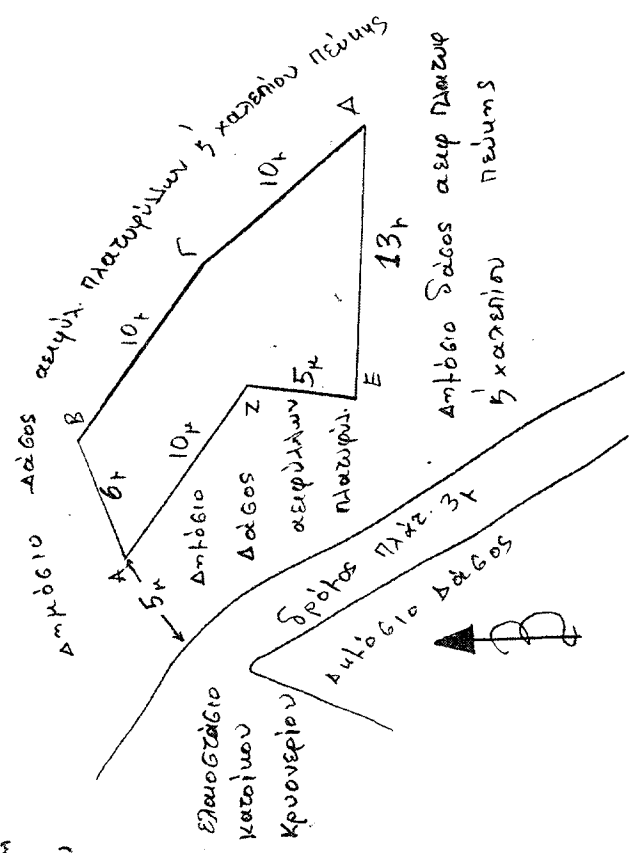 Δημόσιο Δάσος αειφύλ. πλατυφύλλων ή χαλεπίου πεύκης
Β
6μ
Α
10μ
Γ
10μ
Δ
10μ
Ζ
5μ
Ε
13μ
5μ
Δημόσιο
Δάσος
αειφύλλων
πλατυφύλ.
Δημόσιο δάσος αειφ πλατυφ
ή χαλεπίου πεύκης
δρόμος πλάτ. 3μ
Δημόσιο Δάσος
Ελαιοστάσιο
κατοίκου
Κρυονερίου
Β